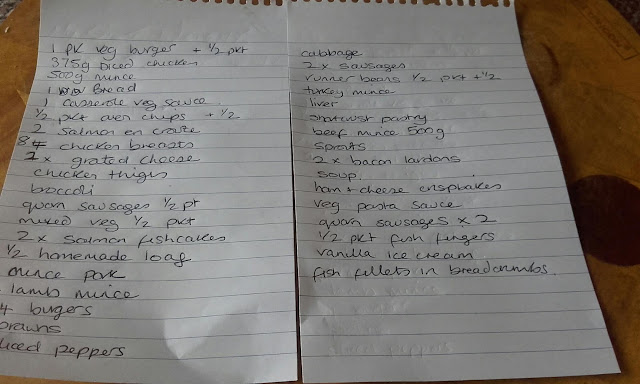 1 pk veg burger + 1/2 pkt
375g diced chicken
500g mince
1 Bread
1 casserole veg sauce
1/2 pkt oven chips + 1/2
2 salmon en croute
8 chicken breasts
2 x grated cheese
chicken thighs
broccoli
quorn sausages 1/2 pt
mixed veg 1/2 pkt
2 x salmon fishcakes
1/2 homemade loaf
mince pork
lamb mince
4 burgers
prawns
liced peppers
cabbage
2 x sausages
runner beans 1/2 pkt + 1/2
turkey mince
liver
shortcrust pastry
beef mince 500g
sprouts
2 x bacon lardons
soup
ham + cheese crispbakes
veg pasta sauce
quorn sausages x 2
1/2 pkt fish fingers
vanilla ice cream
fish fillets in breadcrumbs.